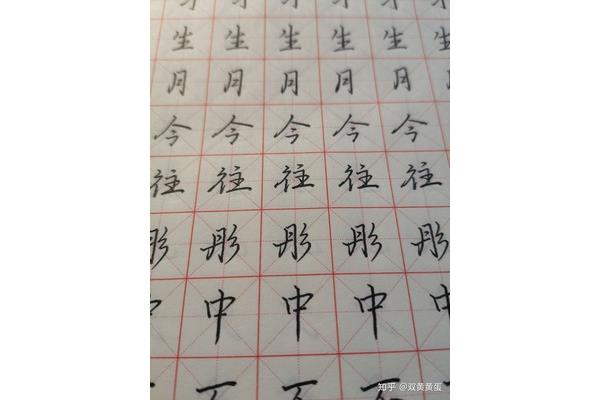 生 生 生 生 生 生
月 月 月 月 月
今 今 今 今 今
往 往 往 往 往
彤 彤 彤 彤 彤
中 中 中 中
知乎 @双黄黄蛋